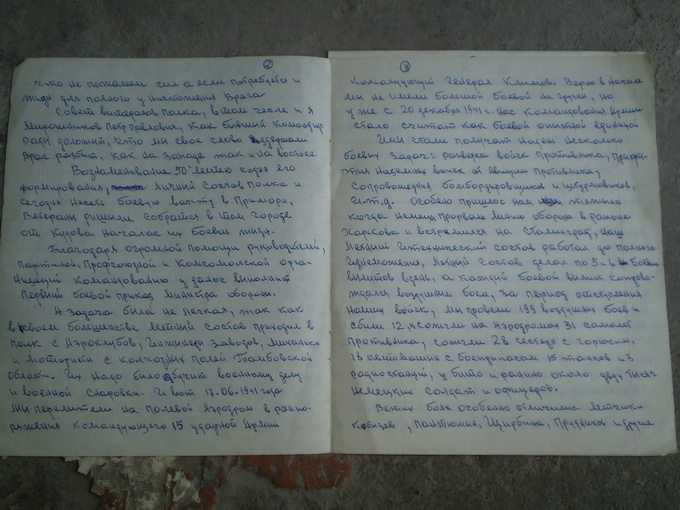 ②
что не пожалеем сил а если потребуется и
жизни для полного уничтожения врага
Совет ветеранов полка, в том числе и я
Мирошников Петр Павлович, как бывший командир
рад доложит, что мы свое слово здержали
враг разбит, как на западе так и на востоке
В ознаменование 50 летие года его
формирования, личный состав полка и
сегодня несет боевую вахту в Приморе,
Ветераны решили собратся в том городе
от куда началас их боевая жизн.
Благодаря огромной помощи руководителей,
партийной, профсоюзной и комсомолской орга-
низаций командованию удалос выполнит
первый боевой приказ министра обороны.
А задача была не легкая, так как
в своем болшенстве летний состав приходил в
полк с Аэроклубов, техники заводов, механики
и мотористы с колхозных полей Тамбовской
области. Их надо было обучит военному делу
и военной сноровки. И вот 17-06-1941 года
мы перелетели на полевой аэродром в распо-
ряжения командующего 15 ударной Армии
③
командующий генерал Климов. Верно в начале
мы не имели болшой боевой нагрузки, но
уже с 20 декабря 1941 г. нас командования Армии
стало считат как боевой опитной единицой
Нам стали получат надень несколько
боевых задач: разведка войск противника, прикры-
тия наземных войск от авиации противника,
сопровождения бомбордировщиков и штурмовиков,
и т.д. Особено пришлос нам тяжило
когда немец прорвал линию оборони в районе
Харкова и устремился на Сталинград, наш
летний и технический состав работал до полного
изнеможения, летний состав делал по 5-6 боевых
вилитов вдень, а каждий боевой вилит сопрово-
ждался воздушним боем, за период отступления
наших войск, ми провели 199 воздушних боев и
сбили 12, и сожгли на аэродромах 31 самолет
противника, сожгли 28 с горючим,
18 автомашин с боеприпасом 15 танков и 3
радиостанций, убито и ранино около двух тысяч
немецких солдат и офицеров.
В етих боях особено отличилис летчики
Кобизев, Пантюхин, Щирбина, Прудников и другие